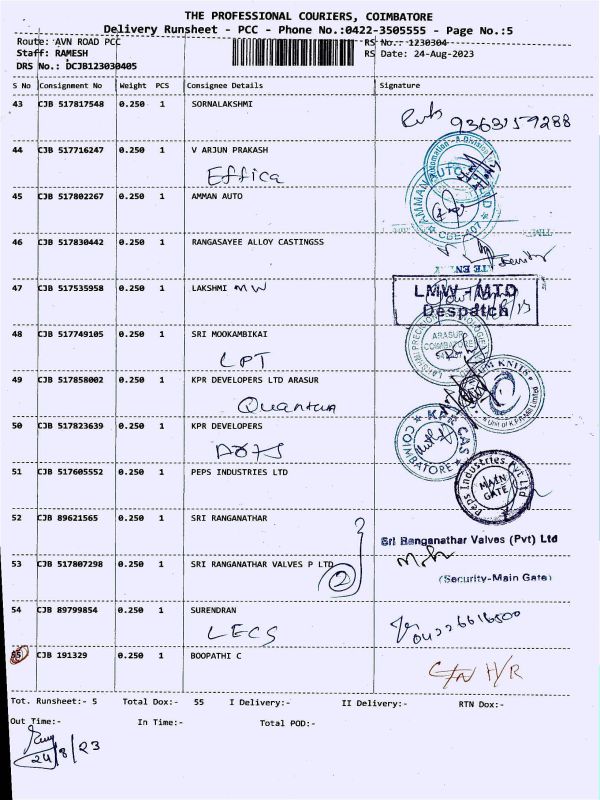 THE PROFESSIONAL COURIERS, COIMBATORE
Delivery Runsheet - PCC - Phone No.:0422-3505555 - Page No.:5
Route: AVN ROAD PCC RS No.: 1230304
Staff: RAMESH RS Date: 24-Aug-2023
DRS No.: DCJB123030405
S No Consignment No Weight PCS Consignee Details Signature
43 CJB 517817548 0.250 1 SORNALAKSHMI
9363159288
44 CJB 517716247 0.250 1 V ARJUN PRAKASH
Effica
45 CJB 517802267 0.250 1 AMMAN AUTO
46 CJB 517830442 0.250 1 RANGASAYEE ALLOY CASTINGSS
Security
47 CJB 517535958 0.250 1 LAKSHMI MW
LMW - MTD
Despatch
48 CJB 517749105 0.250 1 SRI MOOKAMBIKAI
LPT
ARASUR
COIMBATORE
49 CJB 517858002 0.250 1 KPR DEVELOPERS LTD ARASUR
Quantum
50 CJB 517823639 0.250 1 KPR DEVELOPERS
KPR CAS
COIMBATORE
51 CJB 517605552 0.250 1 PEPS INDUSTRIES LTD
Peps Industries Pvt Ltd
MAIN
GATE
52 CJB 89621565 0.250 1 SRI RANGANATHAR
Sri Ranganathar Valves (Pvt) Ltd
53 CJB 517807298 0.250 1 SRI RANGANATHAR VALVES P LTD
2
(Security-Main Gate)
54 CJB 89799854 0.250 1 SURENDRAN
LECS
04226616500
55 CJB 191329 0.250 1 BOOPATHI C
H/R
Tot. Runsheet:- 5 Total Dox:- 55 I Delivery:- II Delivery:- RTN Dox:-
Out Time:- In Time:- Total POD:-
24/8/23